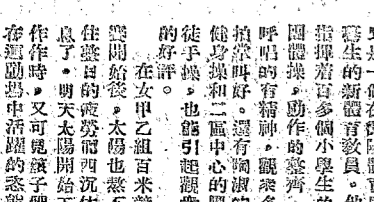 是一個在
生的新體育教員。他
指揮着百多個小學生的
團體操,動作的整齊
呼唱的有精神,觀衆多
拍掌叫好。還有陶淑的
健身操和二區中心的
徒手操,也能引起觀衆
的好評。
在女甲乙組百米
賽開始後,太陽也熬不
住整日的疲勞而西沉休
息了。明天太陽開始工
作作時,又可見健子們
在運動場中活躍的姿態